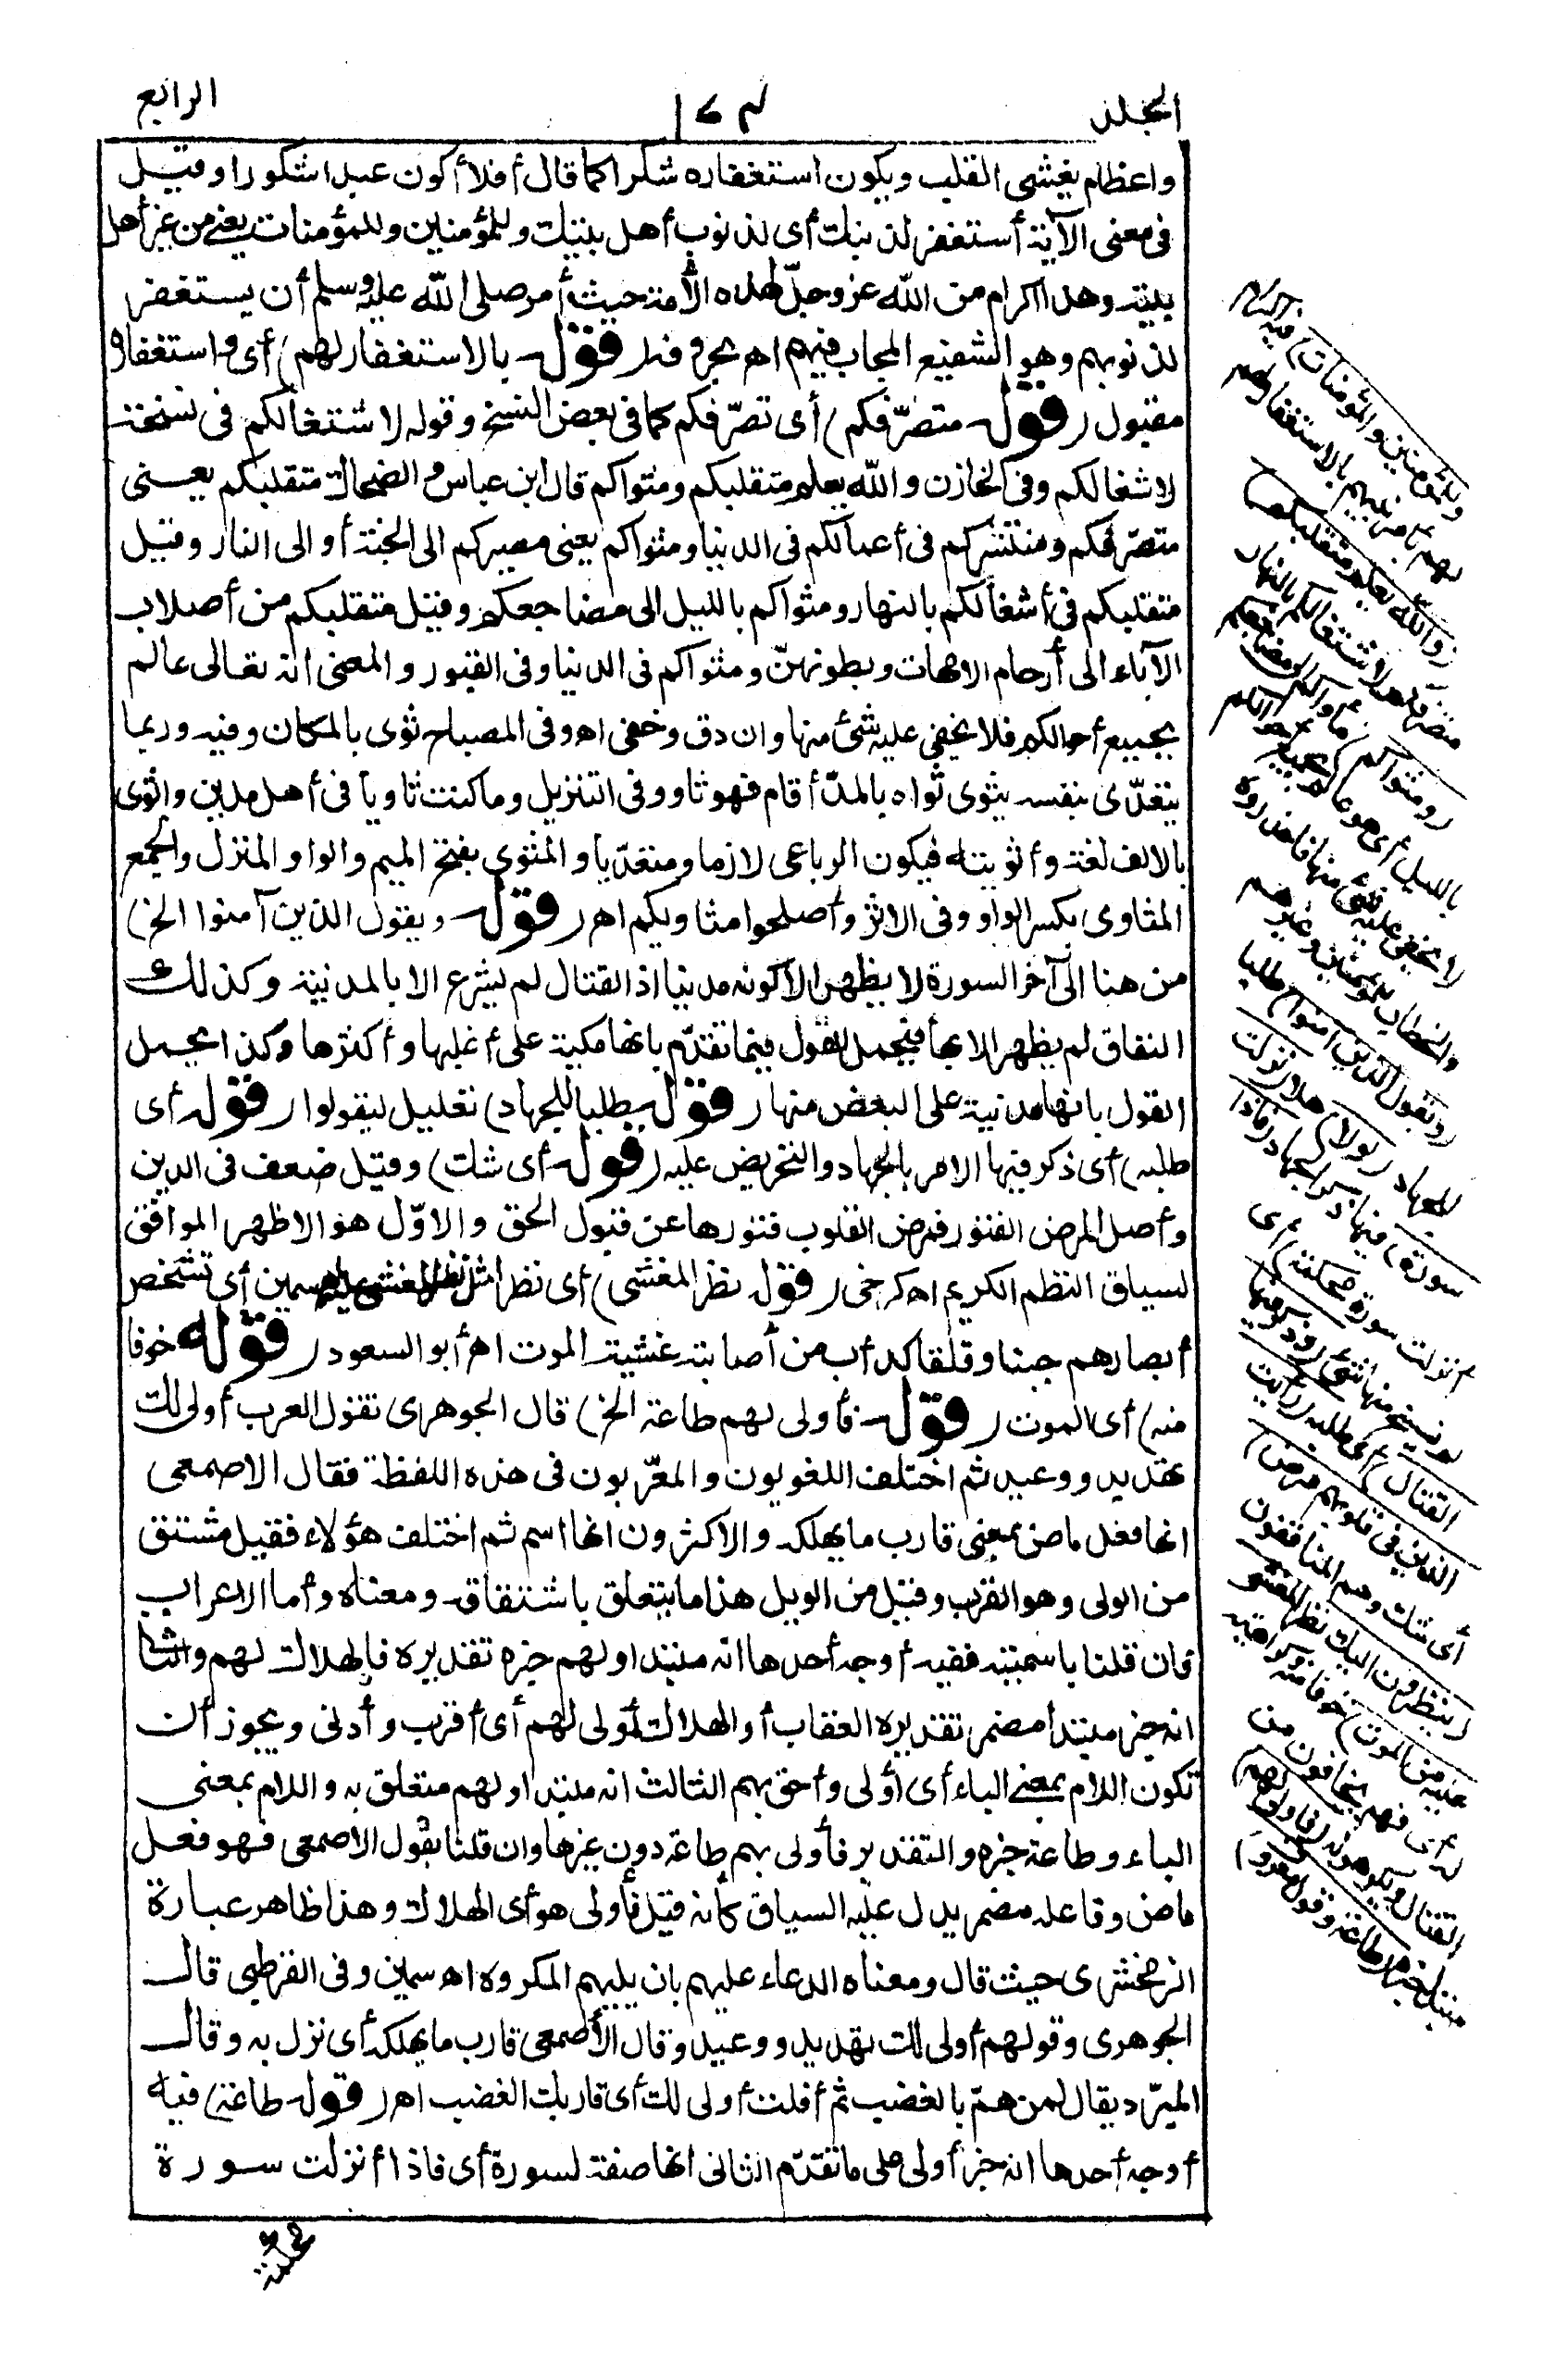 المجلد
١٤٣
الرابع
واعظام يغشى القلب ويكون استغفاره شكرا كما قال أفلا أكون عبدا شكورا وقيل
فى معنى الآية أستغفر لذنبك أى لذنوب أهل بيتك وللمؤمنين وللمؤمنات يعنى من غير أهل
بيته وهذا اكرام من الله عز وجلّ لهذه الأمة حيث أمر صلى الله عليه وسلم أن يستغفر
لذنوبهم وهو الشفيع المجاب فيهم اهـ بحروفه (قوله بالاستغفار لهم) أى واستغفاره
مقبول (قوله متصرّفكم) أى تصرّفكم كما فى بعض النسخ وقوله لاشتغالكم فى نسخة
لاشغالكم وفى الخازن والله يعلم متقلبكم ومثواكم قال ابن عباس والضحاك متقلبكم يعنى
متصرّفكم ومنتشركم فى أعمالكم فى الدنيا ومثواكم يعنى مصيركم الى الجنة أو الى النار وقيل
متقلبكم فى أشغالكم بالنهار ومثواكم بالليل الى مضاجعكم وقيل متقلبكم من أصلاب
الآباء الى أرحام الامهات وبطونهنّ ومثواكم فى الدنيا وفى القبور والمعنى انه تعالى عالم
بجميع أحوالكم فلا يخفى عليه شئ منها وان دق وخفى اهـ وفى المصباح ثوى بالمكان وفيه وربما
يتعدّى بنفسه يثوى ثواء بالمدّ أقام فهو ثاو وفى التنزيل وما كنت ثاويا فى أهل مدين واثوى
بالالف لغة وأثويته فيكون الرباعى لازما ومتعدّيا والمثوى بفتح الميم والواو المنزل والجمع
المثاوى بكسر الواو وفى الاثر وأصلحوا مثاويكم اهـ (قوله ويقول الذين آمنوا الخ)
من هنا الى آخر السورة لا يظهر الا كونه مدنيا اذ القتال لم يشرع الا بالمدينة وكذلك
النفاق لم يظهر الا بها فيحمل القول فيما تقدّم بانها مكية على أغلبها وأكثرها وكذا يحمل
القول بانها مدنية على البعض منها (قوله طلبا للجهاد) تعليل ليقولوا (قوله أى
طلبه) أى ذكر فيها الامر بالجهاد والتحريض عليه (قوله أى شك) وقيل ضعف فى الدين
وأصل المرض الفتور فمرض القلوب فتورها عن قبول الحق والاوّل هو الاظهر الموافق
لسياق النظم الكريم اهـ كرخى (قوله نظر المغشى) أى نظرا مثل نظر المغشى عليه اهـ سمين أى تشخص
أبصارهم جبنا وقلقا كدأب من أصابته غشية الموت اهـ أبو السعود (قوله خوفا
منه) أى الموت (قوله فأولى لهم طاعة الخ) قال الجوهرى تقول العرب أولى لك
تهديد ووعيد ثم اختلف اللغويون والمعرّبون فى هذه اللفظة فقال الاصمعى
انها فعل ماض بمعنى قارب ما يهلكه والاكثرون انها اسم ثم اختلف هؤلاء فقيل مشتق
من الولى وهو القرب وقيل من الويل هذا ما يتعلق باشتقاقه ومعناه وأما الاعراب
فان قلنا باسميته ففيه أوجه أحدها انه مبتدا ولهم خبره تقديره فالهلاك لهم والثانى
انه خبر مبتدأ مضمر تقديره العقاب أو الهلاك أولى لهم أى أقرب وأدنى ويجوز أن
تكون اللام بمعنى الباء أى أولى وأحق بهم الثالث انه مبتدا ولهم متعلق به واللام بمعنى
الباء وطاعة خبره والتقدير فأولى بهم طاعة دون غيرها وان قلنا بقول الاصمعى فهو فعل
ماض وفاعله مضمر يدل عليه السياق كأنه قيل فأولى هو أى الهلاك وهذا ظاهر عبارة
الزمخشرى حيث قال ومعناه الدعاء عليهم بان يليهم المكروه اهـ سمين وفى القرطبى قال
الجوهرى وقولهم أولى لك تهديد ووعيد وقال الأصمعى قارب ما يهلكه أى نزل به وقال
المبرّد يقال لمن همّ بالغضب ثم أفلت أولى لك أى قاربت الغضب اهـ (قوله طاعة) فيه
أوجه أحدها انه خبر أولى على ما تقدّم الثانى انها صفة لسورة أى فاذا أنزلت سورة
محكمة
وللمؤمنين والمؤمنات) فيه اكرام
لهم بأمر نبيهم بالاستغفار لهم
(والله يعلم متقلبكم)
متصرفكم لاشتغالكم بالنهار
(ومثواكم) مأواكم الى مضاجعكم
بالليل أى هو عالم بجميع أحوالكم
لا يخفى عليه شئ منها فاحذروه
والخطاب للمؤمنين وغيرهم
(ويقول الذين آمنوا) طلبا
للجهاد (لولا) هلا (نزلت
سورة) فيها ذكر الجهاد (فاذا
أنزلت سورة محكمة) أى
لم ينسخ منها شئ (وذكر فيها
القتال) أى طلبه (رأيت
الذين فى قلوبهم مرض)
أى شك وهم المنافقون
(ينظرون اليك نظر المغشى
عليه من الموت) خوفا منه وكراهية
له أى فهم يخافون من
القتال ويكرهونه (فأولى لهم)
مبتدأ خبره (طاعة وقول معروف)